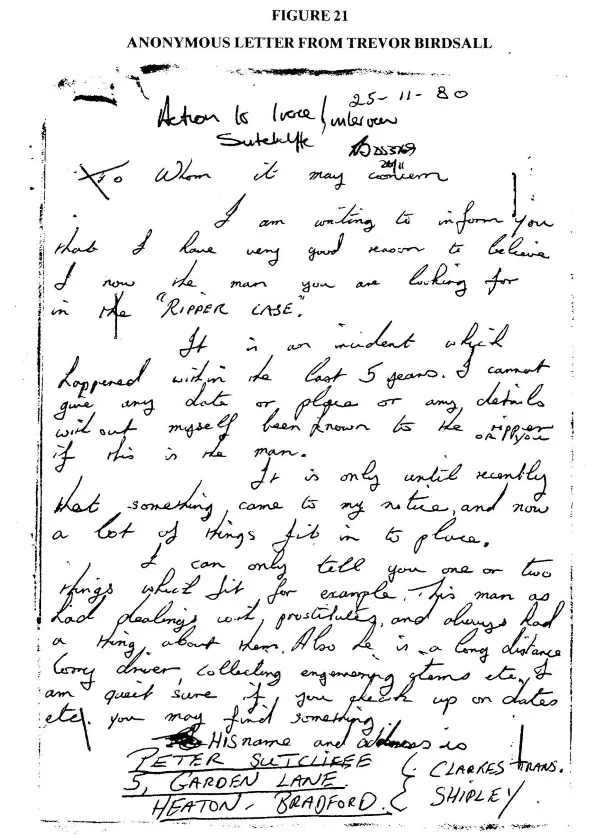 FIGURE 21
ANONYMOUS LETTER FROM TREVOR BIRDSALL
25-11-80
Action to trace/interview
Sutcliffe
26/11
To Whom it may concern
I am writing to inform you
that I have very good reason to believe
I now the man you are looking for
in the "RIPPER CASE."
It is an incident which
happened within the last 5 years. I cannot
give any date or place or any details
without myself been known to the ripper
OR if you
if this is the man.
It is only until recently
that something came to my notice, and now
a lot of things fit in to place.
I can only tell you one or two
things which fit for example. This man as
had dealings with prostitutes, and always had
a thing about them. Also he is a long distance
lorry driver, collecting engineering items etc. I
am quiet sure if you check up on dates
etc. you may find something
HIS name and address is
PETER SUTCLIFFE
5, GARDEN LANE. CLARKES TRANS.
HEATON, BRADFORD. SHIPLEY